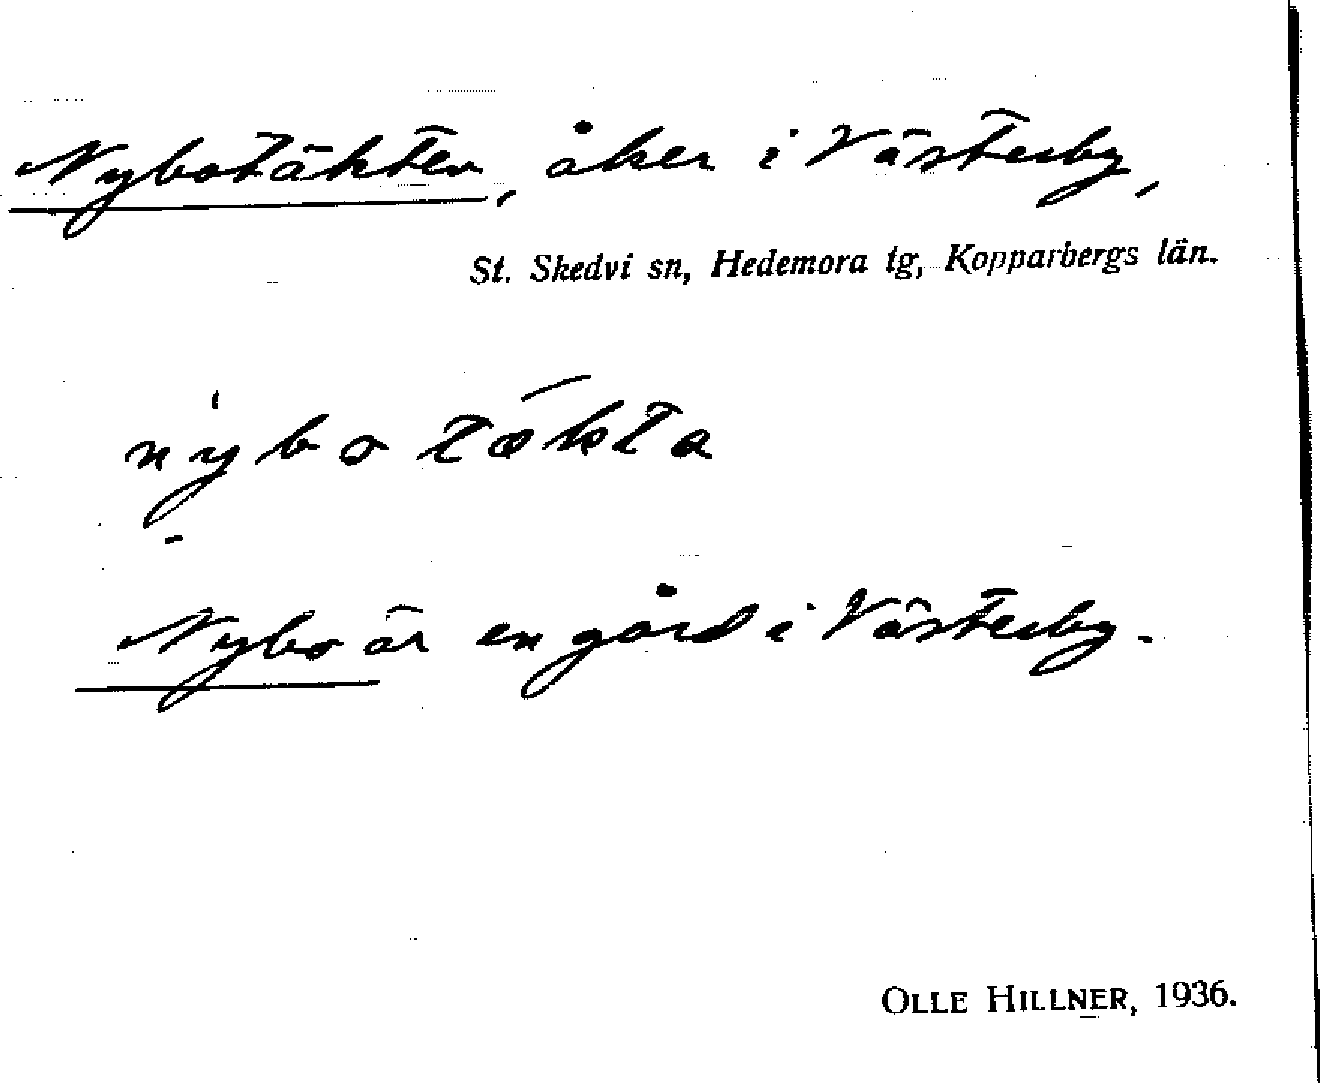 Nybotäkten, åker i Västerby,
St. Skedvi sn, Hedemora tg, Kopparbergs län.
nybo tækta
Nybo är en gård i Västerby.
OLLE HILLNER, 1936.